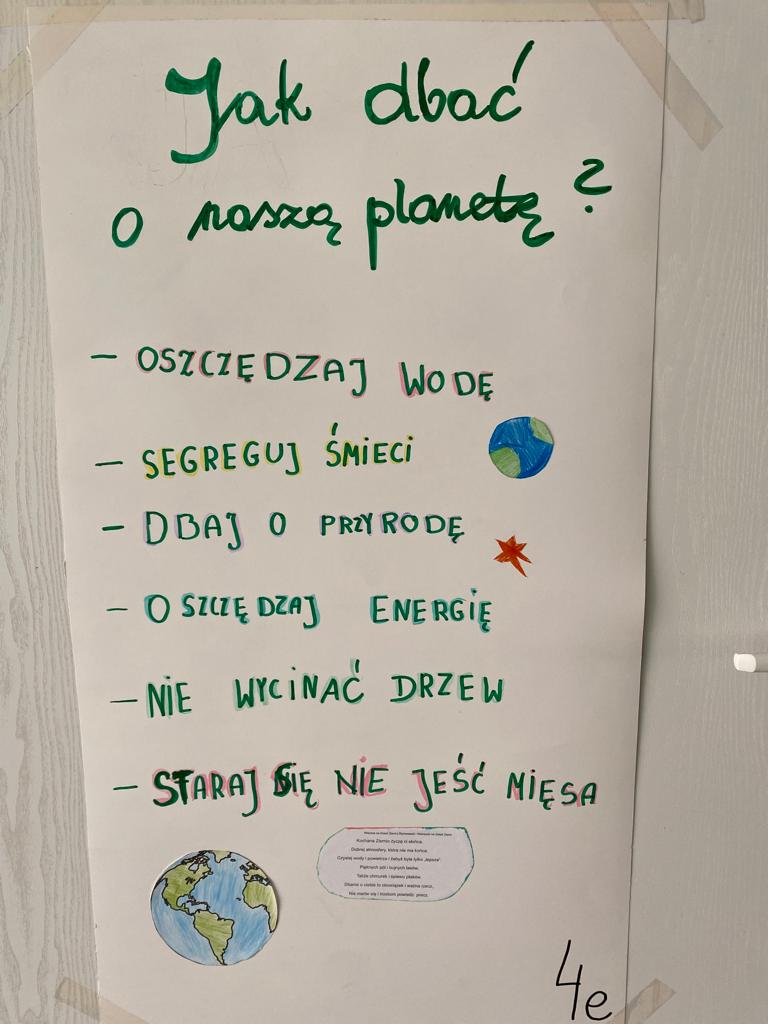 Jak dbać
o naszą planetę ?
- OSZCZĘDZAJ WODĘ
- SEGREGUJ ŚMIECI
- DBAJ O PRZYRODĘ
- OSZCZĘDZAJ ENERGIĘ
- NIE WYCINAĆ DRZEW
- STARAJ SIĘ NIE JEŚĆ MIĘSA
Kochana Ziemio życzę ci słońca.
Dobrej atmosfery, która nie ma końca.
Czystej wody i powietrza i żebyś była tylko „lepsza".
Pięknych pól i bujnych lasów.
Także chmurek i śpiewu ptaków.
Dbanie o ciebie to obowiązek i ważna rzecz,
Nie martw się i troskom powiedz: precz.
4e